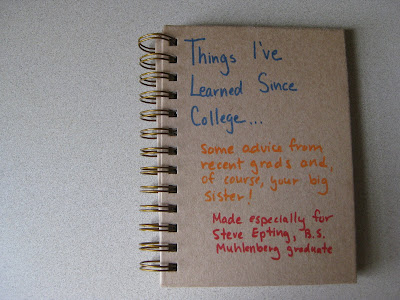 Things I've
Learned Since
College...
Some advice from
recent grads and,
of course, your big
sister!
Made especially for
Steve Epting, B.S.
Muhlenberg graduate